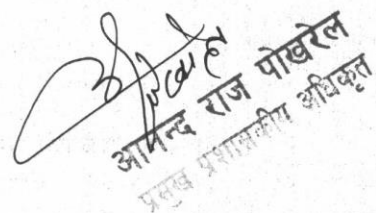 आनन्द राज पोखरेल
प्रमुख प्रशासकीय अधिकृत